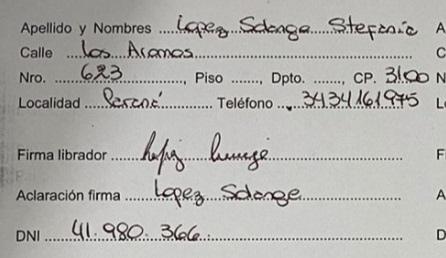 Apellido y Nombres Lopez Solange Stefanie A
Calle Los Aromos C
Nro. 623, Piso ......, Dpto. ......, CP. 3100 N
Localidad Paraná Teléfono 3434161975 L
Firma librador F
Aclaración firma Lopez Solange A
DNI 41.980.366 D